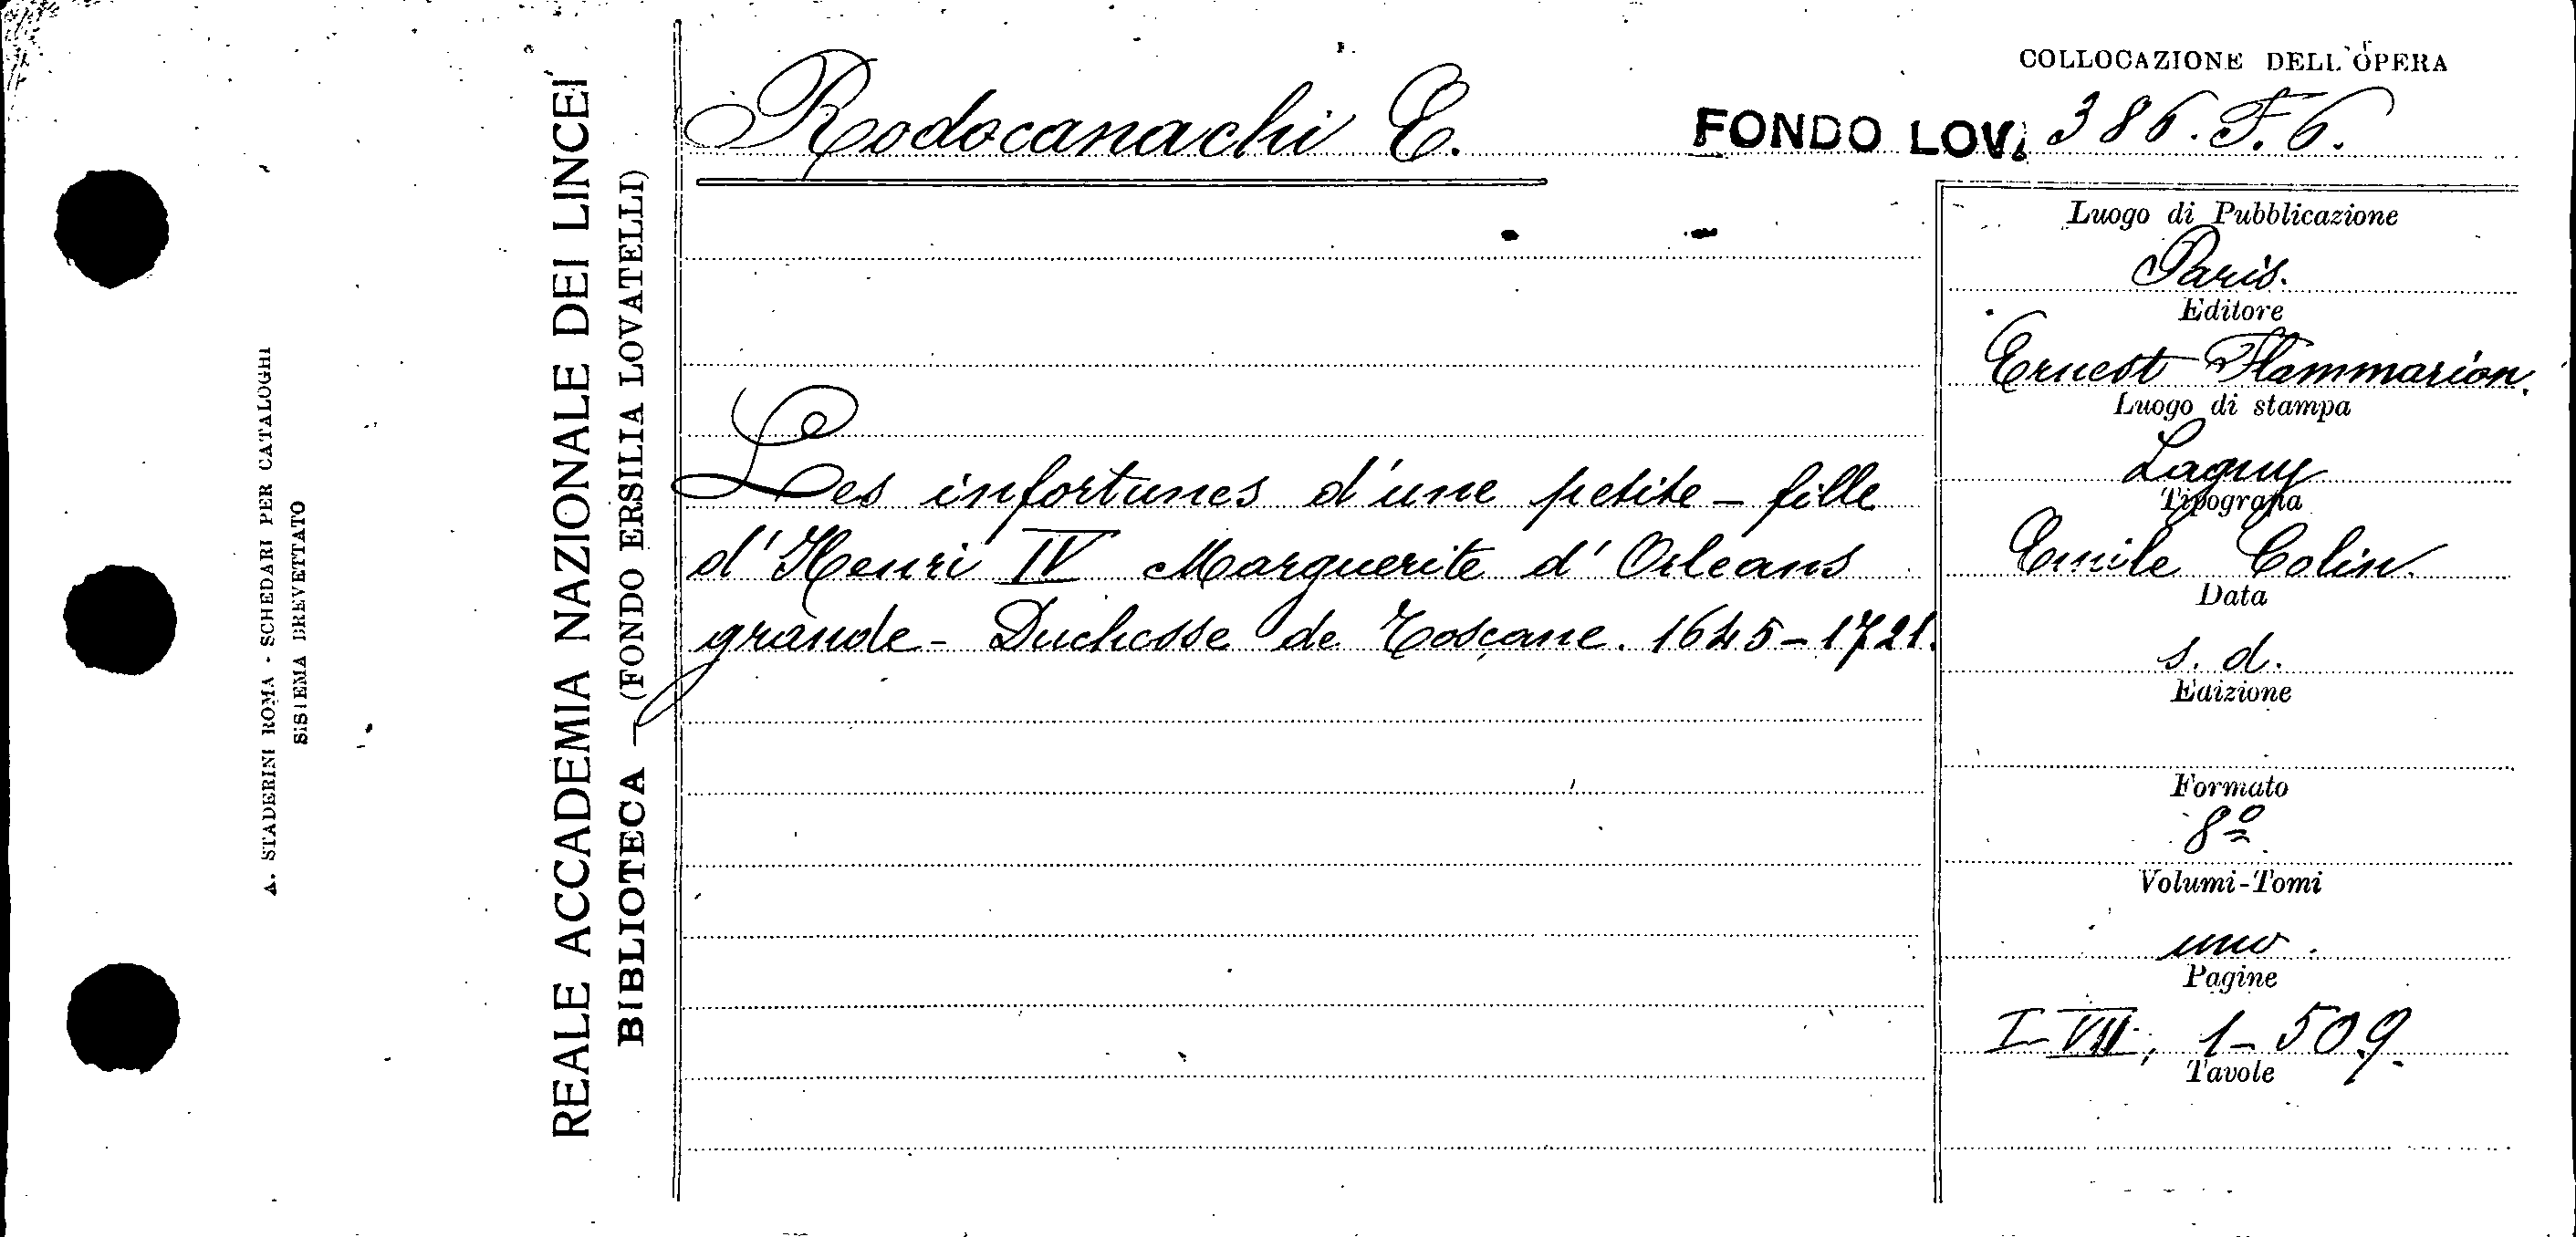 A. STADERINI ROMA - SCHEDARI PER CATALOGHI
SISTEMA BREVETTATO
REALE ACCADEMIA NAZIONALE DEI LINCEI
BIBLIOTECA — (FONDO ERSILIA LOVATELLI)
Rodocanachi E.
COLLOCAZIONE DELL'OPERA
FONDO LOV. 386. F. 6.
Les infortunes d'une petite-fille
d'Henri IV Marguerite d'Orleans
grande-Duchesse de Toscane. 1645-1721.
Luogo di Pubblicazione
Paris.
Editore
Ernest Flammarion.
Luogo di stampa
Lagny
Tipografia
Emile Colin.
Data
s. d.
Edizione
Formato
8º
Volumi-Tomi
uno.
Pagine
I-VII; 1-509.
Tavole